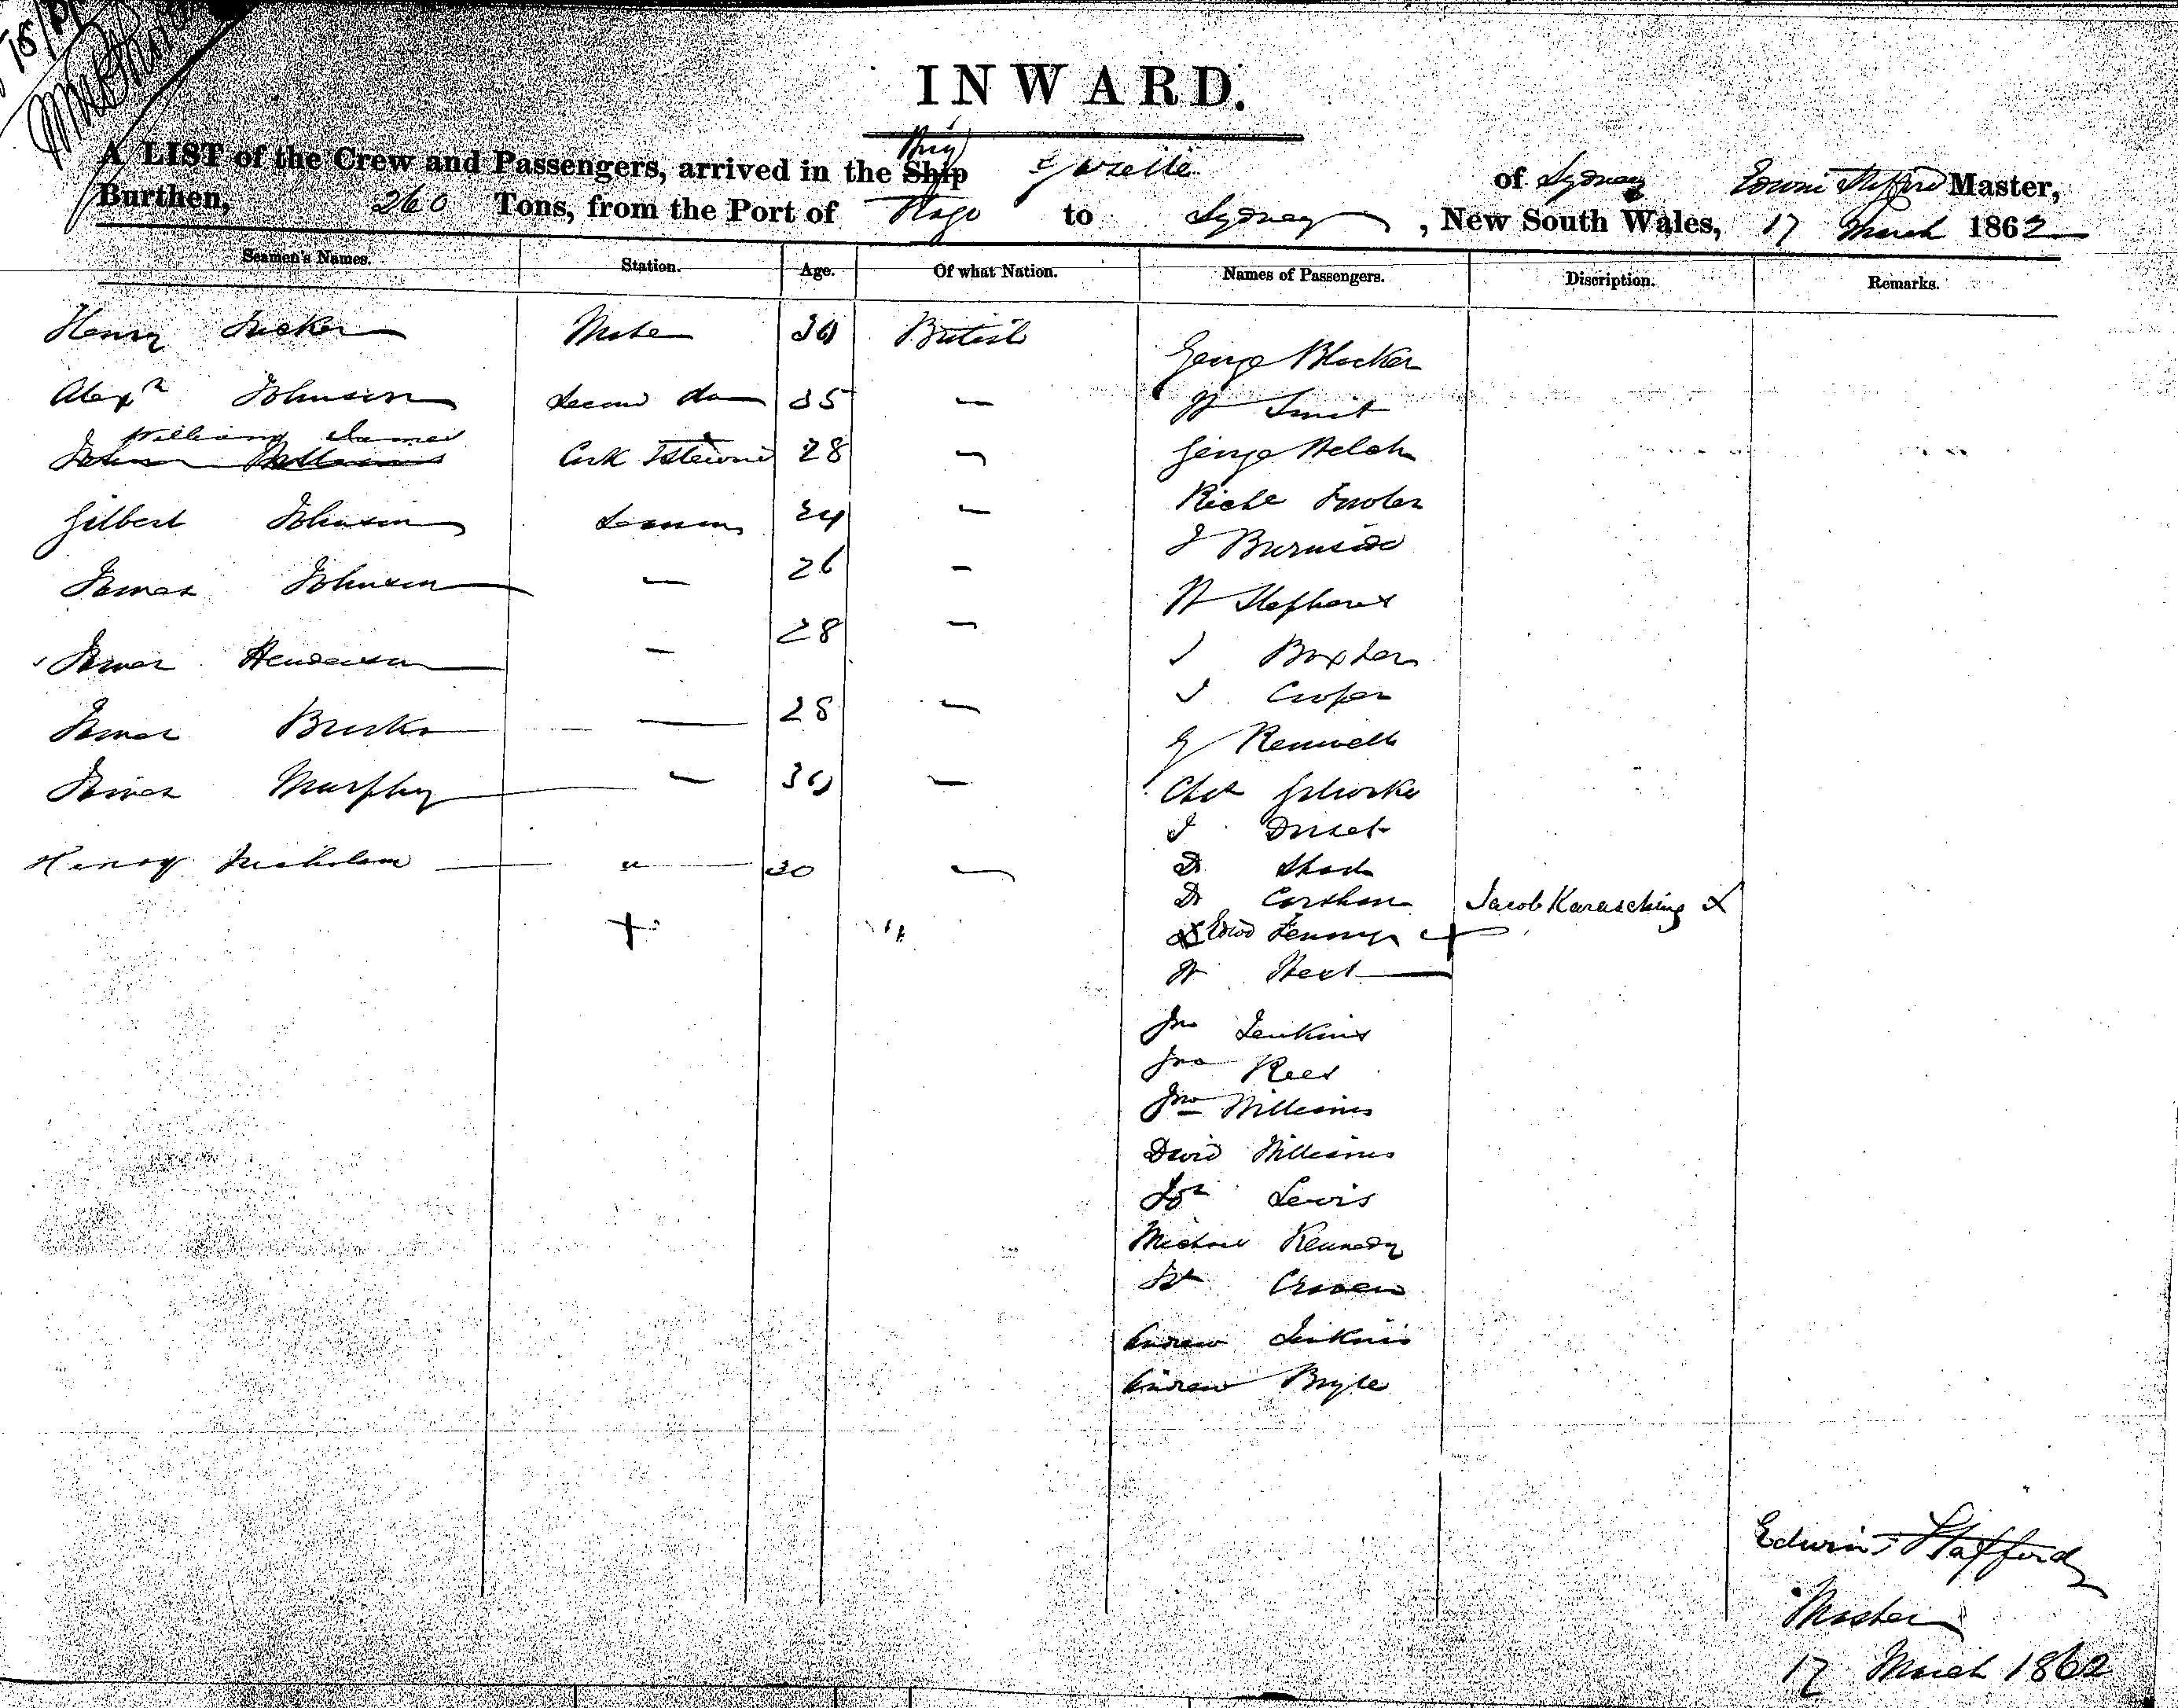 INWARD.
A LIST of the Crew and Passengers, arrived in the Ship Brig Gazelle of Sydney Edwin Stafford Master,
Burthen, 260 Tons, from the Port of Otago to Sydney, New South Wales, 17 March 1862
Seamen's Names. Station. Age. Of what Nation. Names of Passengers. Discription. Remarks.
Henry Tucker Mate 30 British
George Blacker
Alexr Johnson Second do 35 —
W Smit
William James
John Williams Cook & Steward 28 —
George Welch
Gilbert Johnson Seaman 24 —
Richd Fowler
J Burnside
James Johnson — 26 —
W Stephens
James Henderson — 28 —
J Baxter
J Cooper
James Burke — 28 —
G Renwell
James Murphy — 30 —
Chas
J Dorset
Henry Nicholson " 30 —
Dr Shad
Dr Jacob Karasching X
Edwd
W West
Jno Jenkins
Jno Rees
Jno Williams
David Williams
Jos Lewis
Michael Kennedy
Craven
Andrew Jenkins
Andrew Bryce
Edwin Stafford
Master
17 March 1862